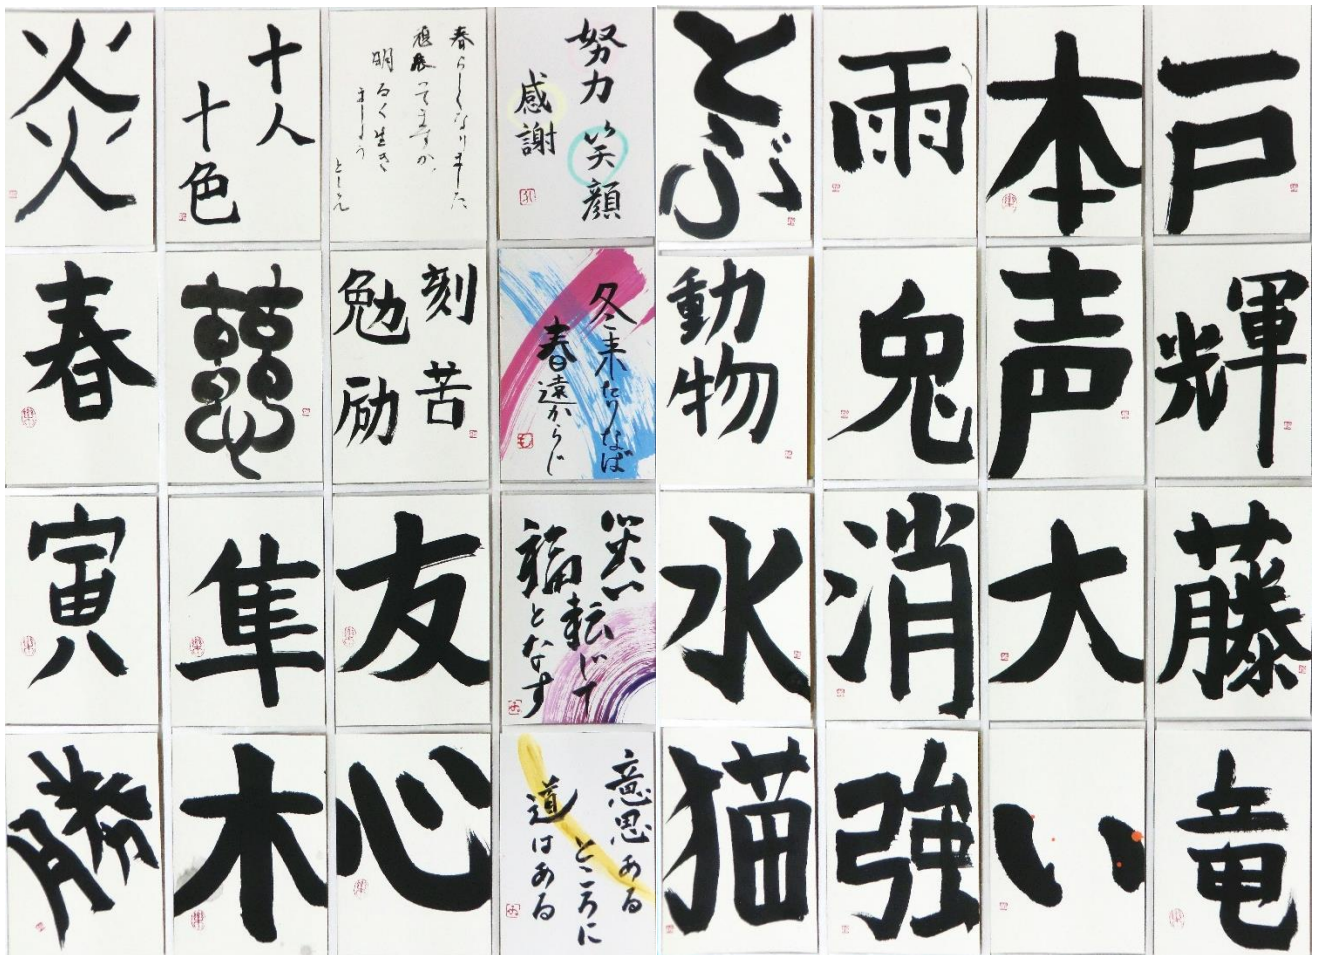 炎
十人
十色
春らしくなりました
明るく生き
ましょう
としえ
努力 笑顔
感謝
とぶ
雨
本
戸
春
刻苦
勉励
冬来たりなば
春遠からじ
動物
鬼
声
輝
寅
隼
友
笑い転じて
福となす
水
消
大
藤
勝
木
心
意思ある
ところに
道はある
猫
強
い
竜